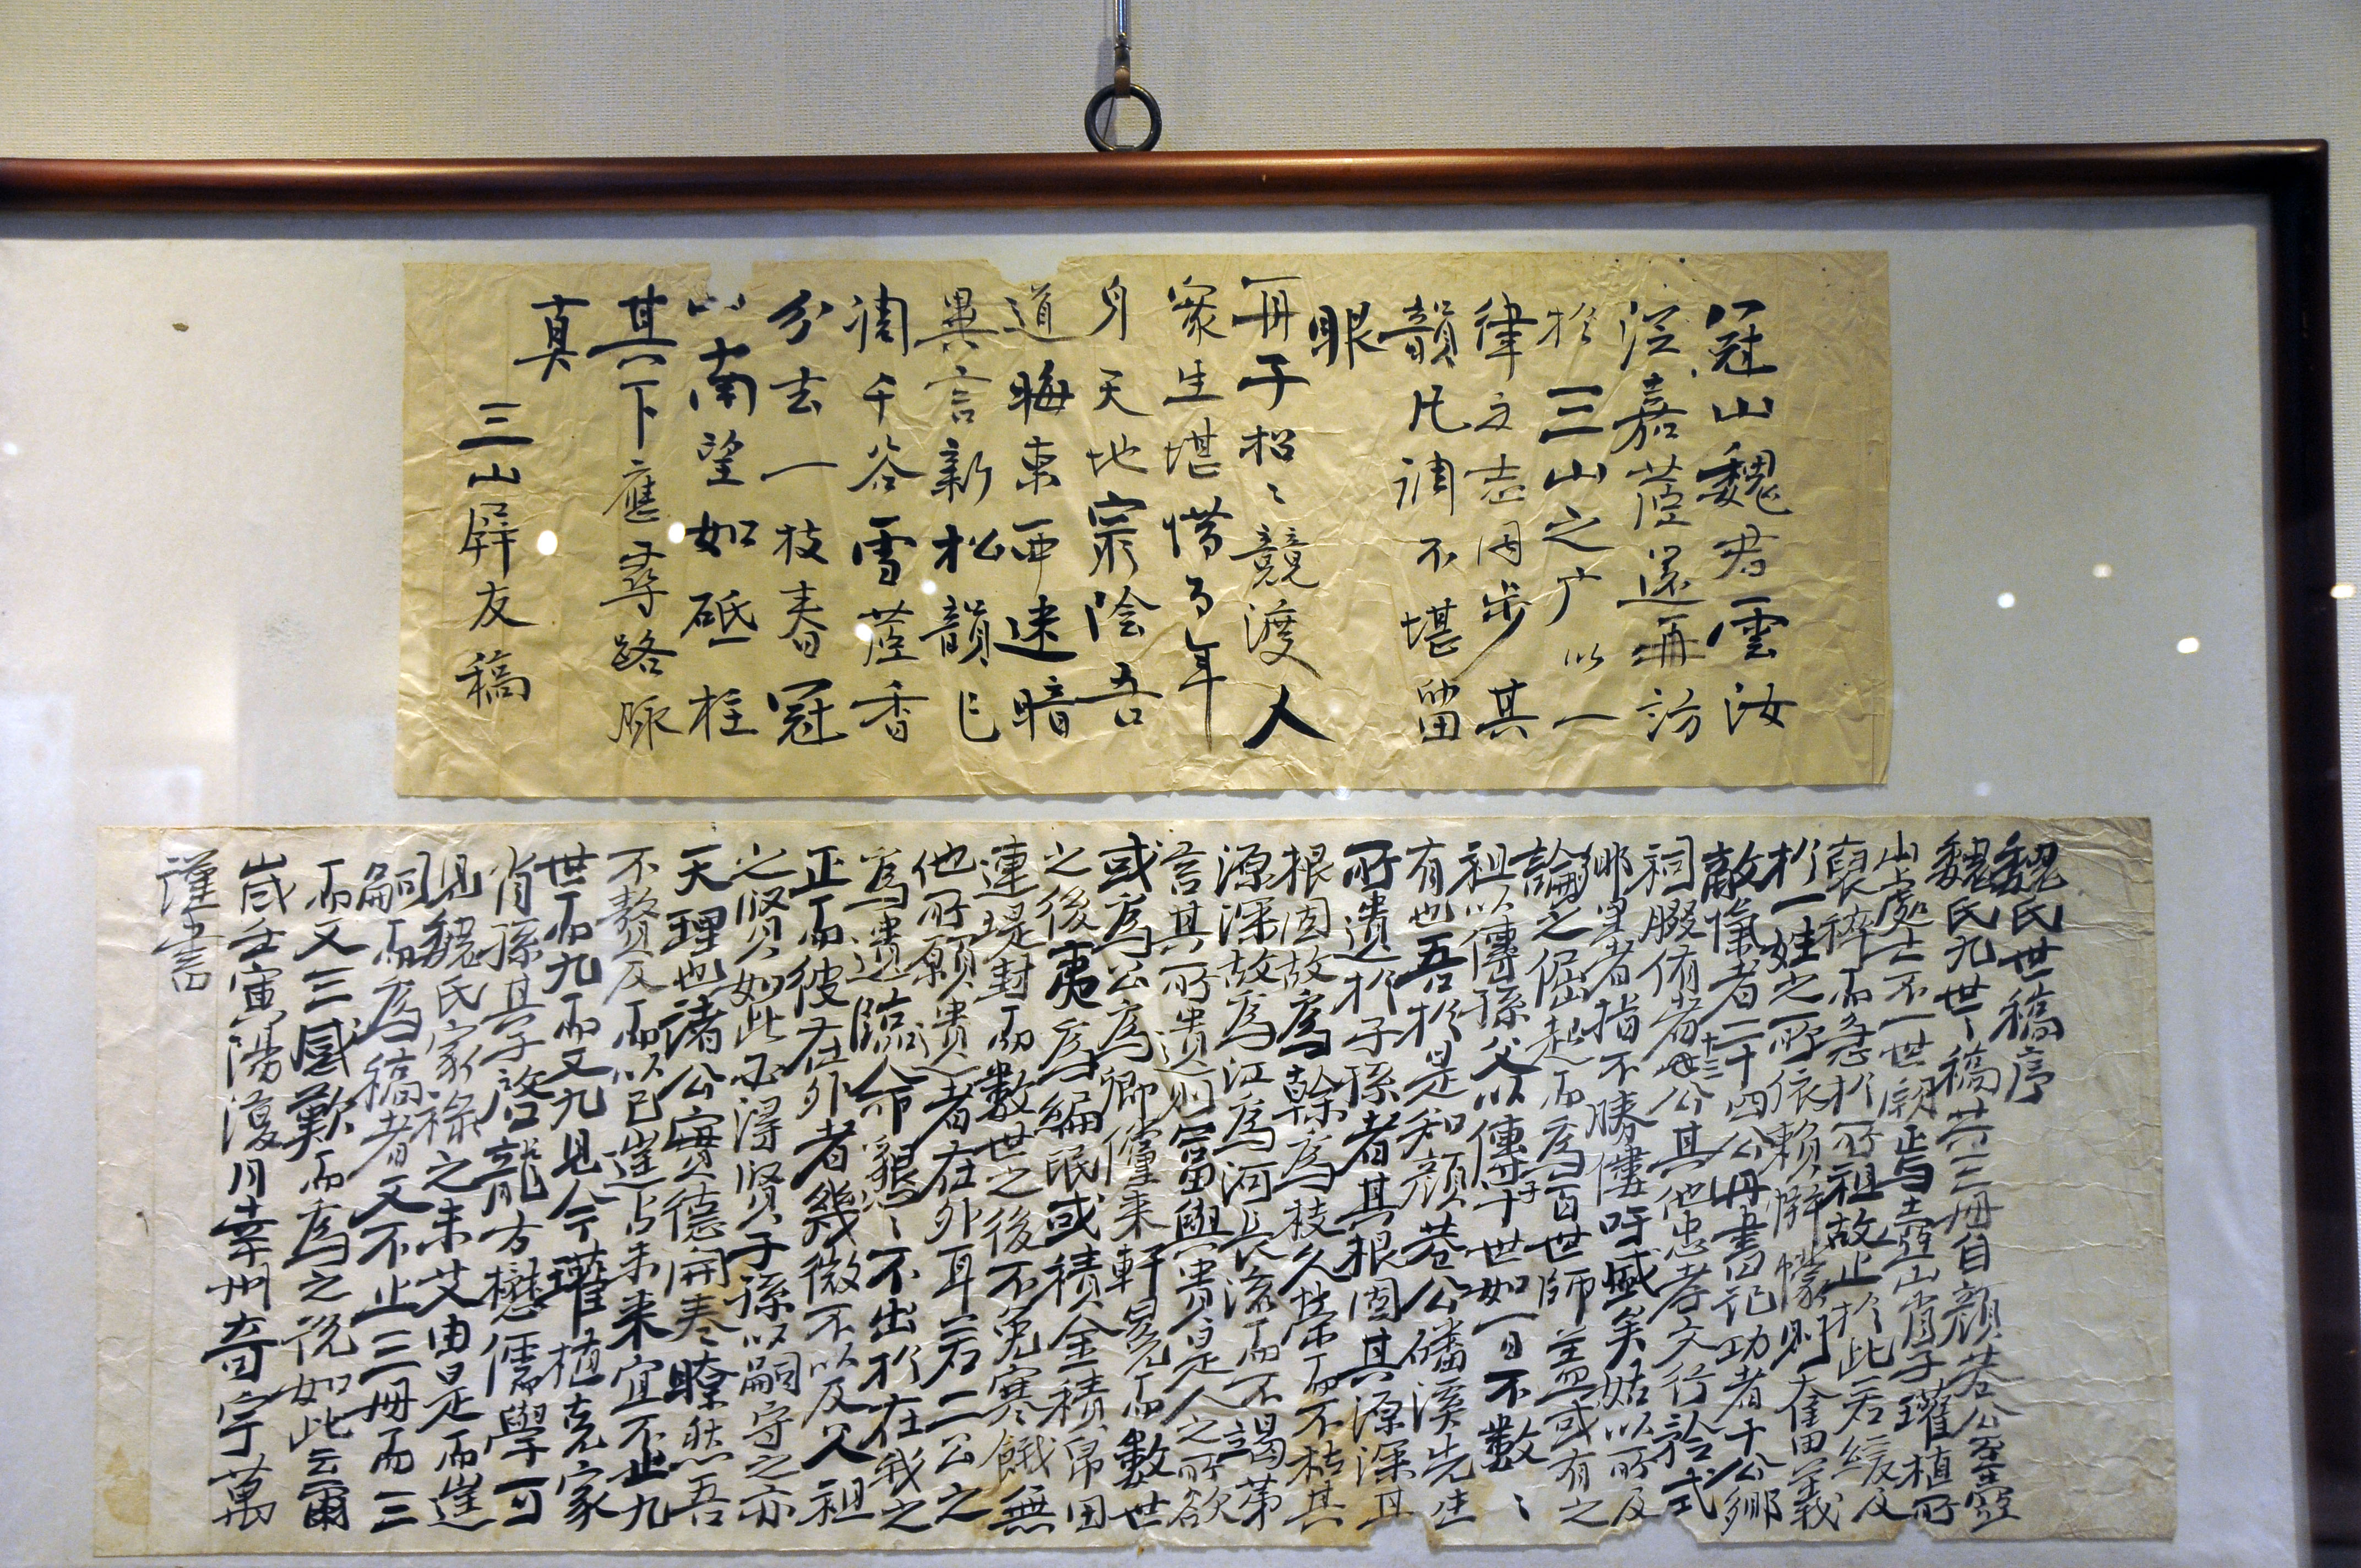 冠山魏君雲汝
從嘉藍還再訪
於三山之广以一
律之志同步其
韻凡調不堪留
眼
再子招〻競渡人
家生堪惜弓年
身天地窮陰吾
道晦東西迷暗
異言新松韻已
凋千谷雪蘆香
分去一枝春冠
以南望如砥柱
其下應尋路脉
真
三山屛友稿
魏氏世稿序
魏氏九世〻稿共三冊自顔巷公至壺
山處士不一世剛正与壺山肖子瓘植所
裒稡而急於所祖故止於此若緩及
於一姓之所依賴幈幪則大奎田義
敵愾者二十四公冊書記功者十公鄉
祠腏侑者十三公其他忠孝文行矜式
鄉里者指不勝僂吁盛矣姑以所及
論之倔起而爲百世師蓋或有之
祖以傳孫父以傳子十世如一日不數〻
有也吾於是知顔巷公磻溪先生
所遺於子孫者其根固其源深其
根固故爲幹爲枝久榮而不枯其
源深故爲江爲河長流而不竭第
言其所遺前富與貴是人之所欲
或爲公爲卿儻來軒冕而數世
之後夷爲編氓或積金積帛田
連堤封而數世之後不免寒餓無
他所願貴〻者在外耳若二公之
爲遺遺臨命懇〻不出於在我之
正而彼在外者幾微不以及父祖
之賢如此必得賢子孫以嗣守之亦
天理也諸公實德開卷瞭然吾
不贅及而以已往占未来宜不止九
世而九而又九見今瓘植克家
肖孫其子啓龍方懋儒學可
見魏氏家祿之未艾由是而往
嗣而爲稿者又不止三冊而三
而又三感歎而爲之說如此云爾
歲壬寅陽復月幸州奇宇萬
謹書